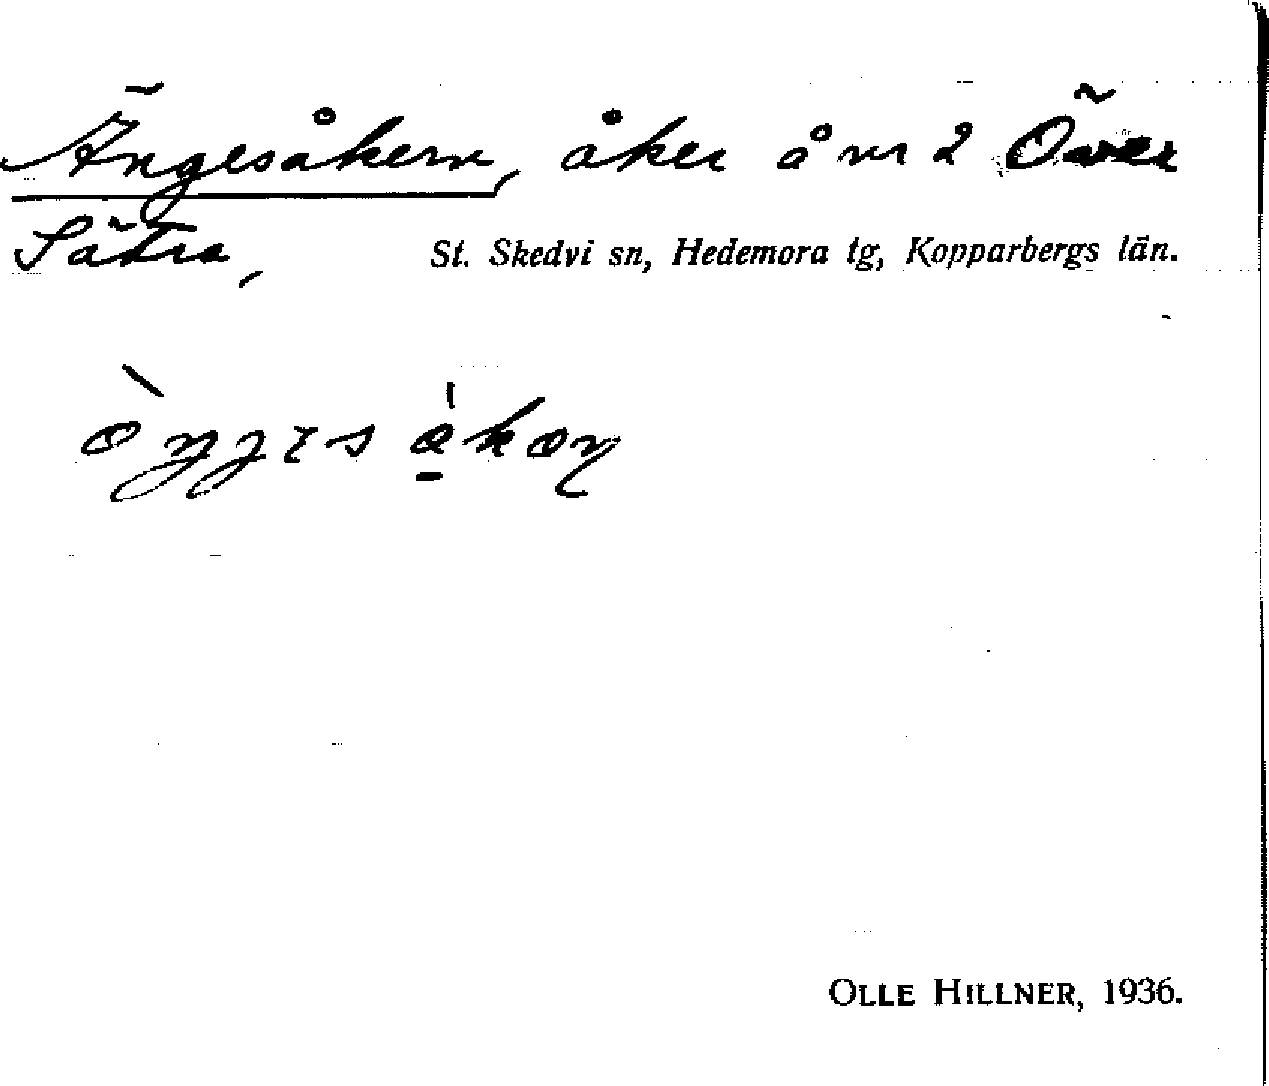 Ängesåkern, åker å nr 2 Över
Sätra, St. Skedvi sn, Hedemora tg, Kopparbergs län.
OLLE HILLNER, 1936.